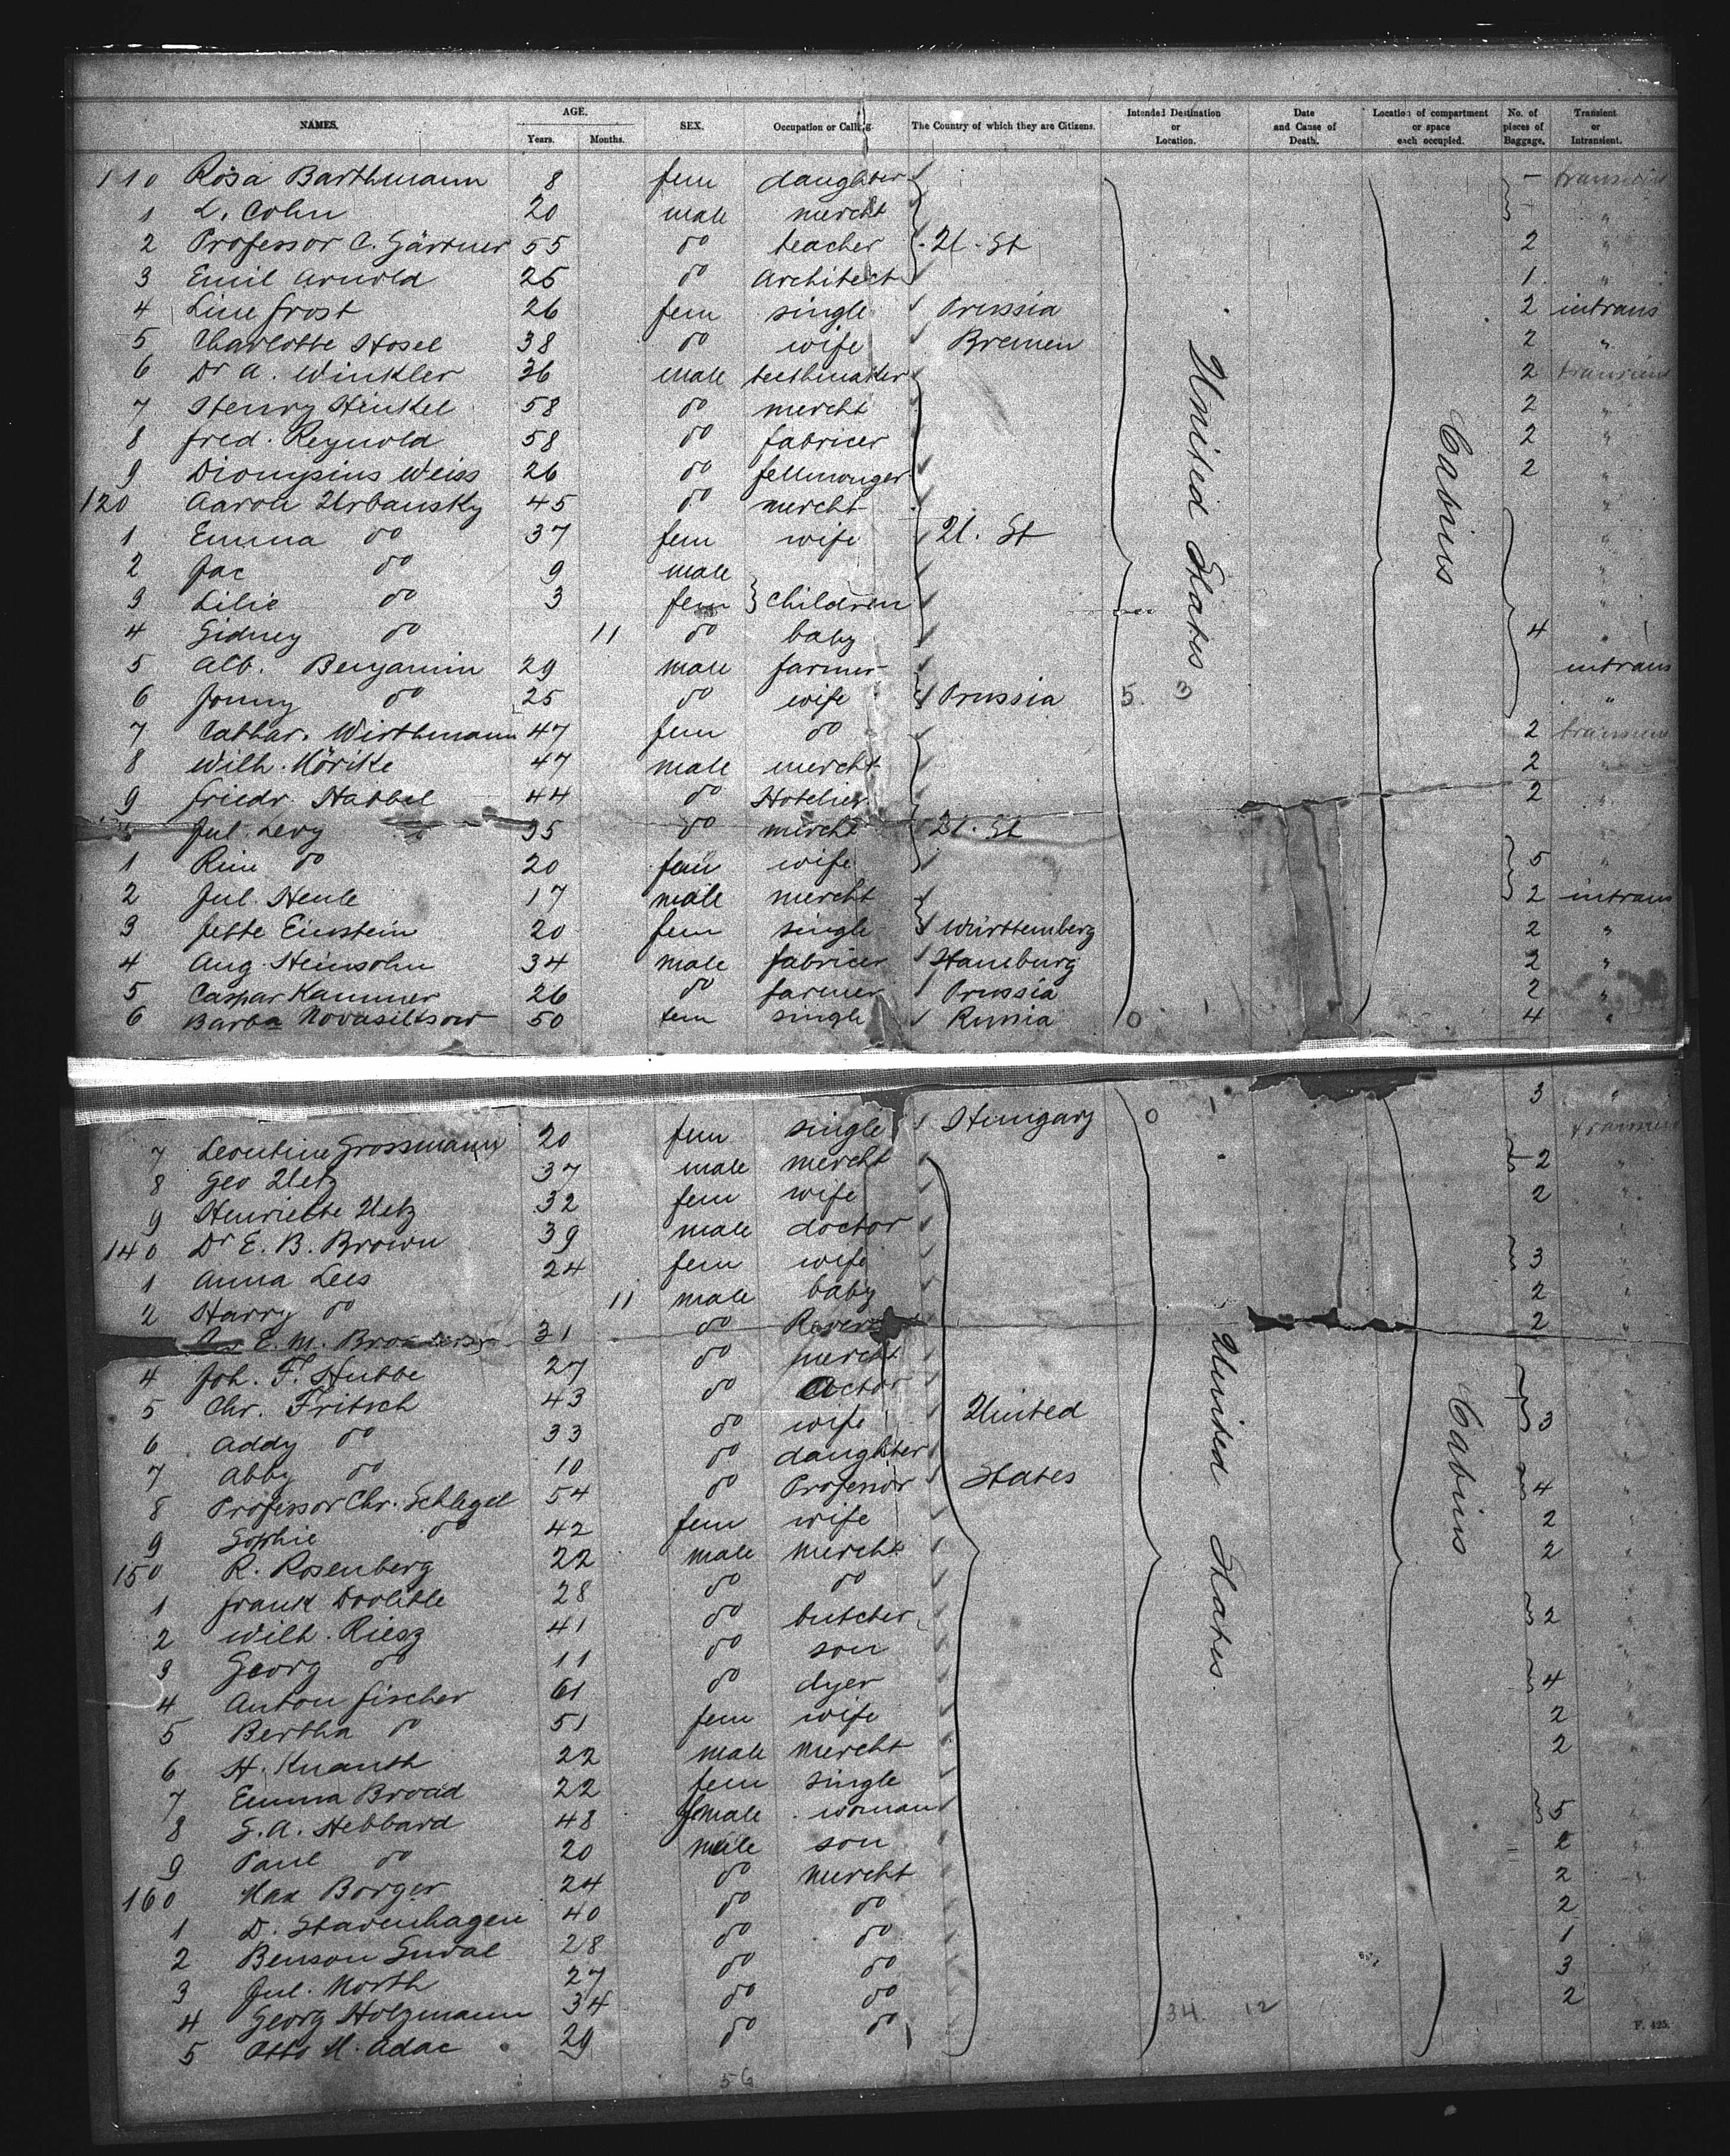 NAMES. AGE. Years. Months. SEX. Occupation or Calling. The Country of which they are Citizens. Intended Destination or Location. Date and Cause of Death. Location of compartment or space each occupied. No. of pieces of Baggage. Transient or Intransient.
110 Rosa Barthmann 8 fem daughter - transient
1 L. Cohn 20 male mercht - "
2 Professor C. Gärtner 55 do teacher U. St 2 "
3 Emil Arnold 25 do Architect 1 "
4 Line Frost 26 fem single Prussia 2 intrans
5 Charlotte Hosel 38 do wife Bremen 2 "
6 Dr A. Winkler 36 male teethmaker 2 transient
7 Henry Hinkel 58 do mercht 2 "
8 Fred. Reynold 58 do fabricer 2 "
9 Dionysius Weiss 26 do fellmonger 2 "
120 Aaron Urbansky 45 do mercht "
1 Emma do 37 fem wife U. St "
2 Jac do 9 male "
3 Lilie do 3 fem } children "
4 Sidney do 11 do baby 4 "
5 Alb. Benjamin 29 male farmer intrans
6 Jonny do 25 do wife Prussia 5 3 "
7 Cathar. Wirthmann 47 fem do 2 transient
8 Wilh. Mörike 47 male mercht 2 "
9 Friedr. Habbel 44 do Hotelier 2 "
Jul. Levy 35 do mercht U. St "
1 Rine do 20 fem wife 5 "
2 Jul. Henle 17 male mercht 2 intrans
3 Jette Einstein 20 fem single Württemberg 2 "
4 Aug. Heinsohn 34 male fabricer Hamburg 2 "
5 Caspar Kammer 26 do farmer Prussia 2 "
6 Barba Novasiltsow 50 fem single Russia 0 1 4 "
United States
Cabins
3 "
7 Leontine Grossmann 20 fem single Hungary 0 1 transient
8 Geo Uetz 37 male mercht 2 "
9 Henriette Uetz 32 fem wife 2 "
140 Dr E. B. Brown 39 male doctor
1 Anna Lees 24 fem wife 3 "
2 Harry do 11 male baby 2 "
E. M. 31 do 2 "
4 Joh. F. Hubbe 27 do mercht
5 Chr. Fritsch 43 do Actor
6 Addy do 33 do wife United 3
7 Abby do 10 do daughter
8 Professor Chr. Schlegel 54 do Professor States 4
9 Sophie do 42 fem wife 2
150 R. Rosenberg 22 male mercht 2
1 Frank Doolitle 28 do do
2 Wilh. Riesz 41 do butcher 2
3 Georg do 11 do son
4 Anton Fischer 61 do dyer 4
5 Bertha do 51 fem wife 2
6 H. Knauth 22 male mercht 2
7 Emma Broad 22 fem single
8 S. A. Hebbard 48 female woman 5
9 Paul do 20 male son 2
160 Max Borger 24 do mercht 2
1 D. Stavenhagen 40 do do 2
2 Benson 28 do do 1
3 Jul. North 27 do do 3
4 Georg Holzmann 34 do do 34 12 2
5 Otto M. Adae 29 do do
United States
Cabins
56
F. 425.